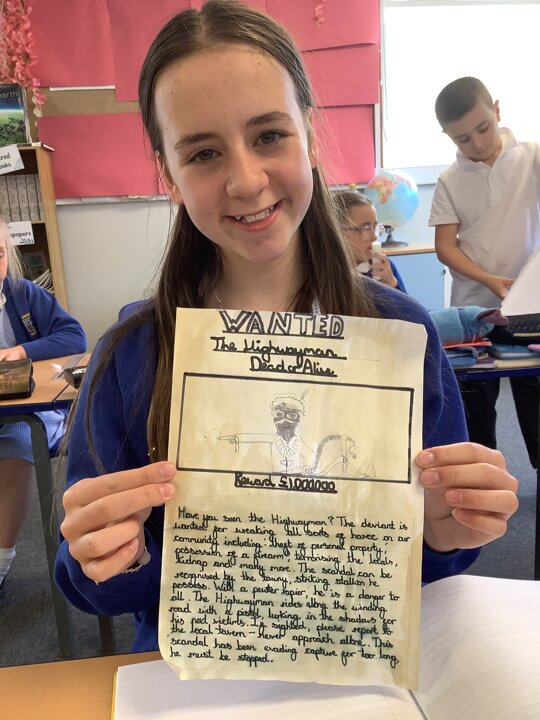 WANTED
The Highwayman
Dead or Alive
Reward £1,000000
Have you seen the Highwayman? The deviant is
wanted for wreaking all sorts of havoc in our
community including: theft of personal property,
possession of a firearm, terrorising the locals,
kidnap and many more. The scandal can be
recognised by the young, striking stallion he
possess. With a pewter rapier, he is a danger to
all. The Highwayman rides along the winding
road with a pistol, lurking in the shadows for
his next victims. If sighted, please report to
the local tavern - never approach alone. This
scandal has been evading capture for too long,
he must be stopped.
earth